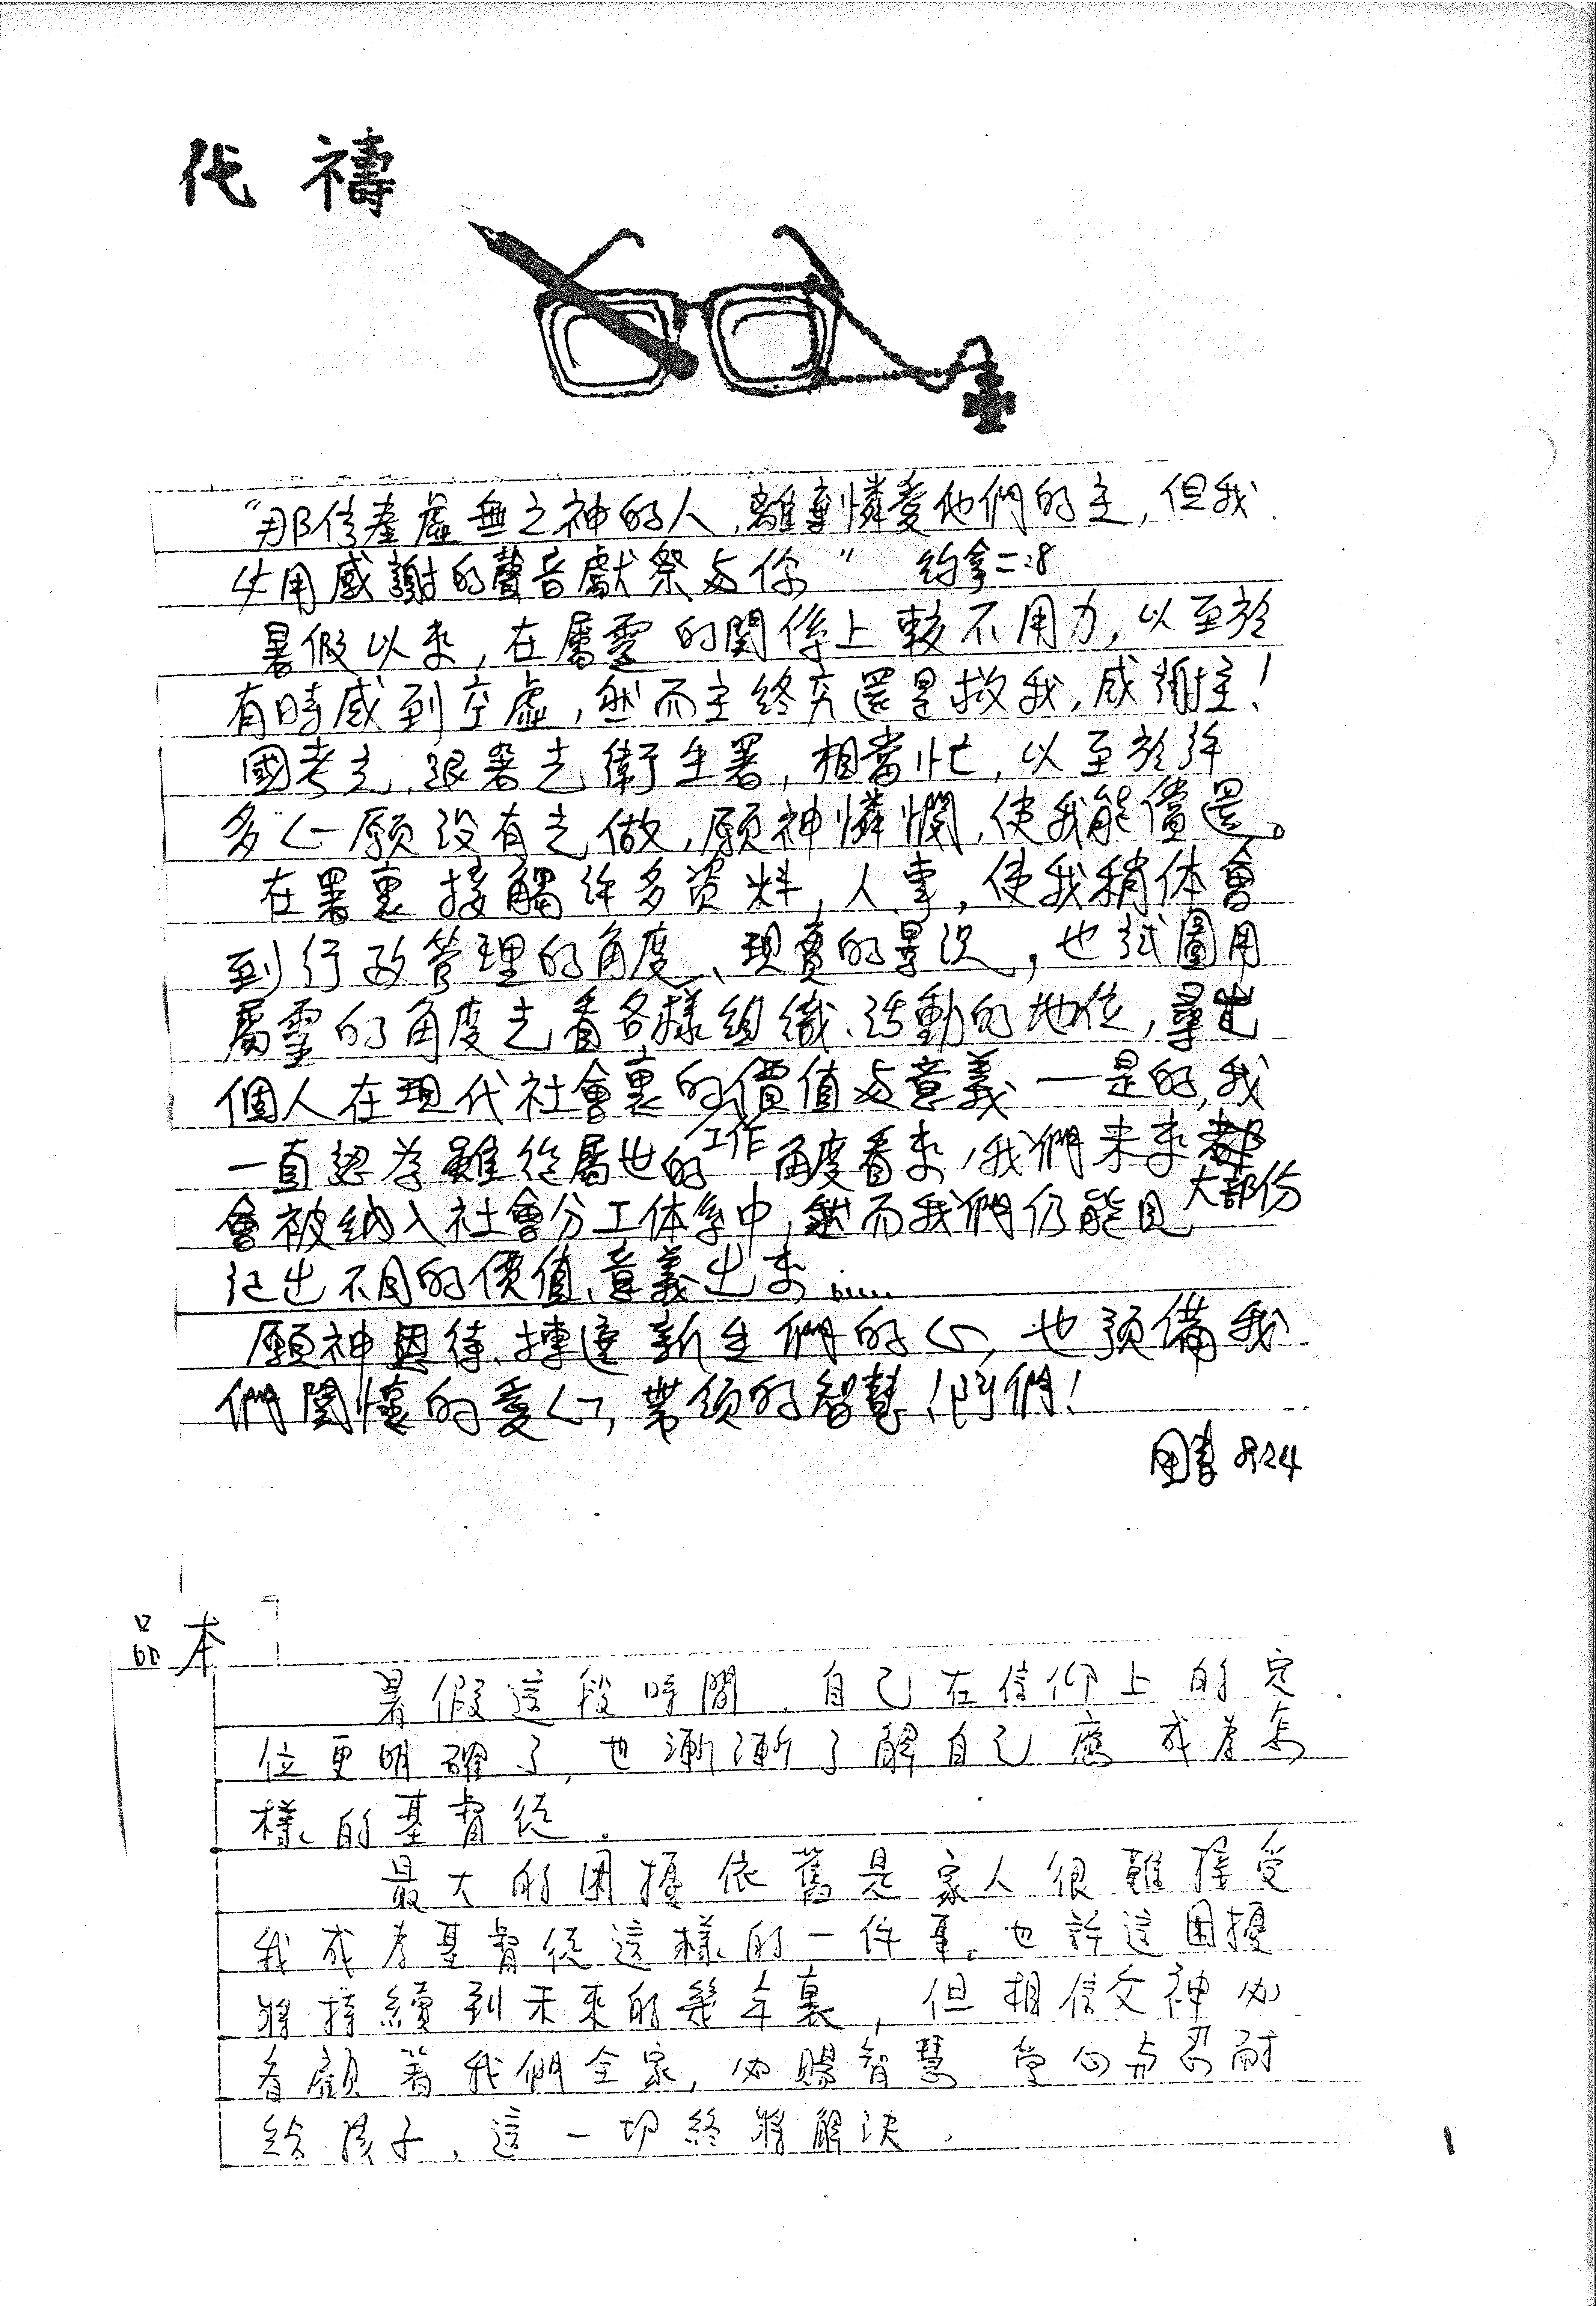 代禱
"那信奉虛無之神的人,離棄憐愛他們的主,但我
必用感謝的聲音獻祭与你" 約拿二:8
暑假以來,在屬靈的関係上較不用力,以至於
有時感到空虛,然而主終究還是救我,感謝主!
國考完,跟著去衛生署,相當忙,以至於許
多心願沒有去做,願神憐憫,使我能償還。
在署裏接觸許多資料,人事,使我稍体會
到行政管理的角度、現實的景況,也試圖用
屬靈的角度去看各樣組織、活動的地位,尋出
個人在現代社會裏的價值与意義—是的,我
一直認為雖從屬世的工作角度看來,我們未來大部份
會被納入社會分工体系中,然而我們仍能
活出不同的價值、意義出來……
願神恩待、揀選新生們的心,也預備我
們関懷的愛心,帶領的智慧!阿們!
8.24
品本
暑假這段時間,自己在信仰上的定
位更明確了,也漸漸了解自己應成為怎
樣的基督徒。
最大的困擾依舊是家人很難接受
我成為基督徒這樣的一件事。也許這困擾
將持續到未來的幾年裏,但相信父神必
看顧著我們全家,必賜智慧、愛心与忍耐
給孩子,這一切終將解決。
1